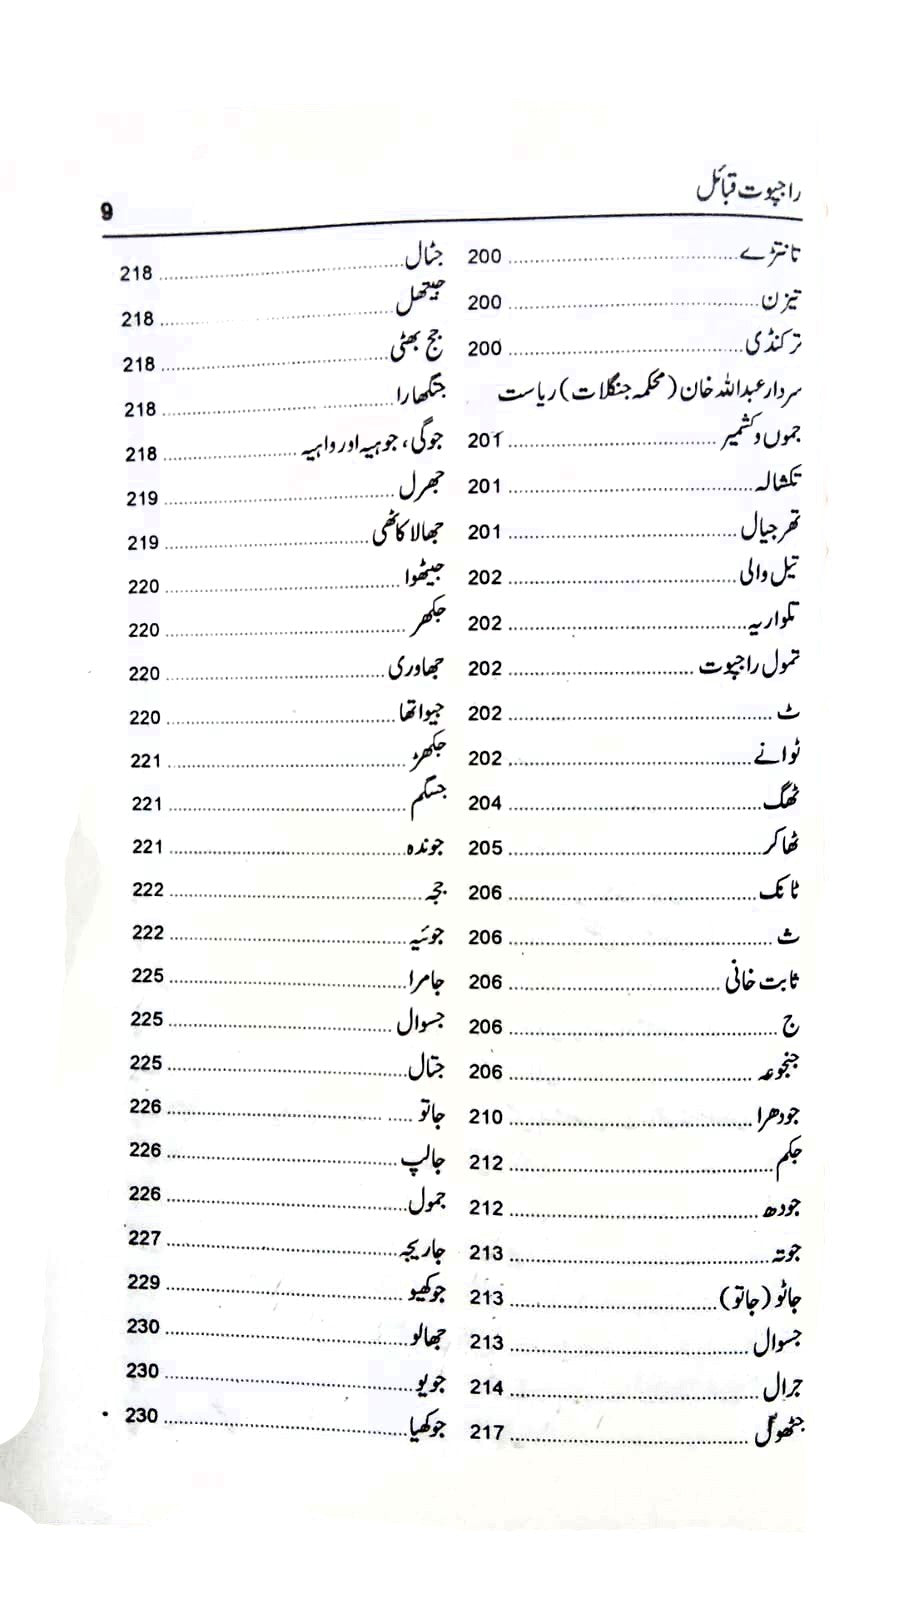 راجپوت قبائل
9
تانترے 200
تیزن 200
ترکنڈی 200
سردار عبداللہ خان (محکمہ جنگلات) ریاست
جموں و کشمیر 201
تکشالہ 201
تھرجیال 201
تیل والی 202
تکواریہ 202
تمول راجپوت 202
ٹ 202
ٹوانے 202
ٹھگ 204
ٹھاکر 205
ٹانک 206
ث 206
ثابت خانی 206
ج 206
جنجوعہ 206
جودھرا 210
جکم 212
جودھ 212
جوتہ 213
جاٹو (جاتو) 213
جسوال 213
جرال 214
جٹھول 217
جٹال 218
جیتھل 218
جج بھٹی 218
جنگھارا 218
جوگی، جوہیہ اور واہیہ 218
جھرل 219
جھالا کاٹھی 219
جیٹھوا 220
جکھر 220
جھاوری 220
جیواتھا 220
جکھڑ 221
جسگم 221
جوندہ 221
ججہ 222
جوئیہ 222
جامرا 225
جسوال 225
جتال 225
جاتو 226
جالپ 226
جمول 226
جاریجہ 227
جوکھیو 229
جھالو 230
جویو 230
جوکھیا 230